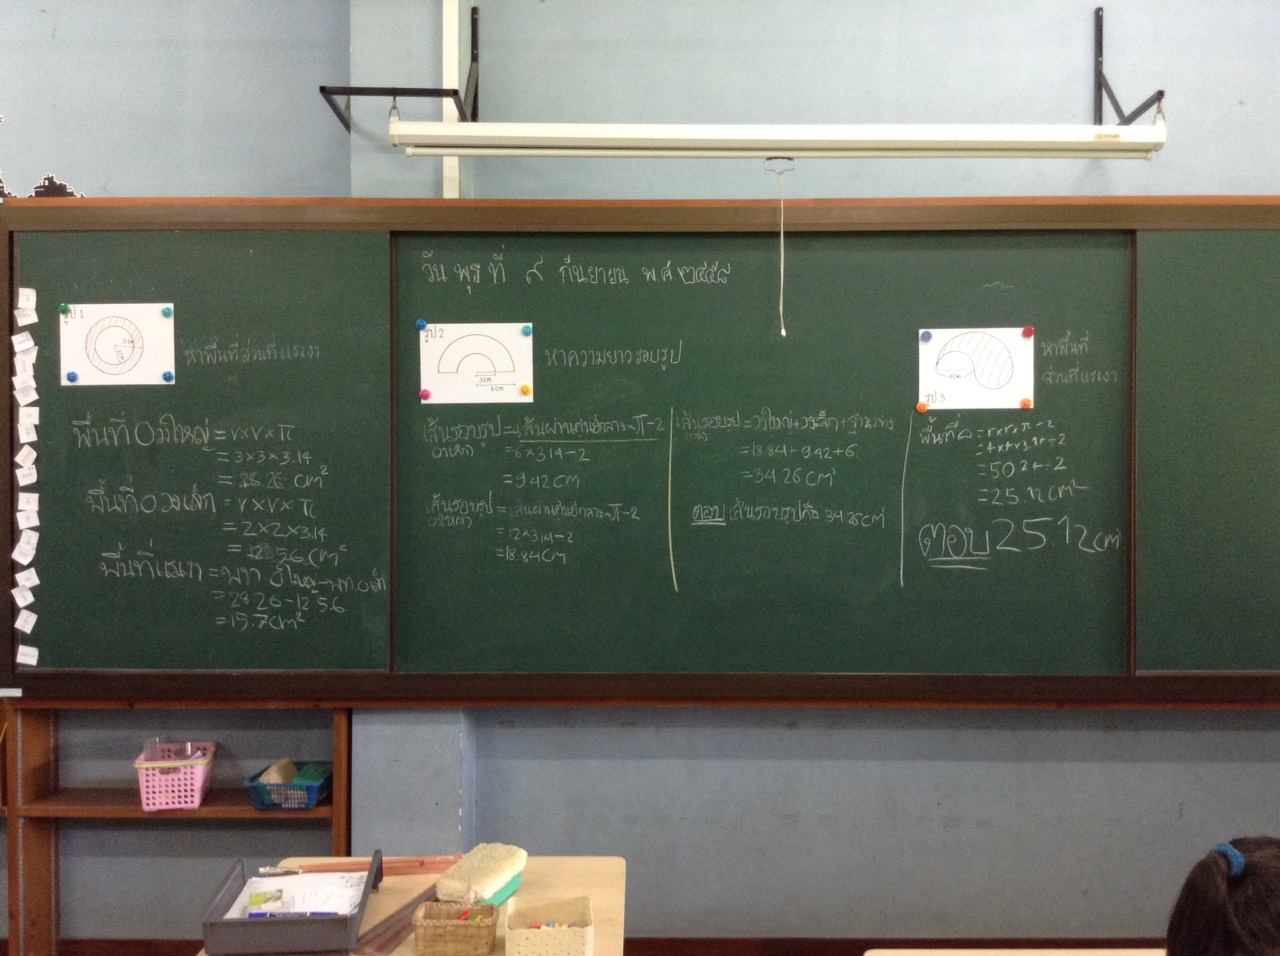 วันพุธที่ ๙ กันยายน พ.ศ.๒๕๕๘
รูป 1
3cm
2cm
หาพื้นที่ส่วนที่แรเงา
พื้นที่ O วงใหญ่ = r×r×π
= 3×3×3.14
= 28.26 cm²
พื้นที่ O วงเล็ก = r×r×π
= 2×2×3.14
= 12.56 cm²
พื้นที่แรเงา = พท. Oใหญ่-พท.Oเล็ก
= 28.26-12.56
= 15.7cm²
รูป 2
3cm
6cm
หาความยาวรอบรูป
เส้นรอบรูป = เส้นผ่านศูนย์กลาง×π÷2
(วงเล็ก) = 6×3.14÷2
= 9.42 cm
เส้นรอบรูป = เส้นผ่านศูนย์กลาง×π÷2
(วงใหญ่) = 12×3.14÷2
= 18.84cm
เส้นรอบรูป = วงใหญ่+วงเล็ก+ฐานล่าง
= 18.84+9.42+6
= 34.26 cm
ตอบ เส้นรอบรูปคือ 34.26cm
รูป 3
8cm
หาพื้นที่
ส่วนที่แรเงา
พื้นที่ = r×r×π÷2
= 4×4×3.14÷2
= 50.24÷2
= 25.12cm²
ตอบ 25.12cm